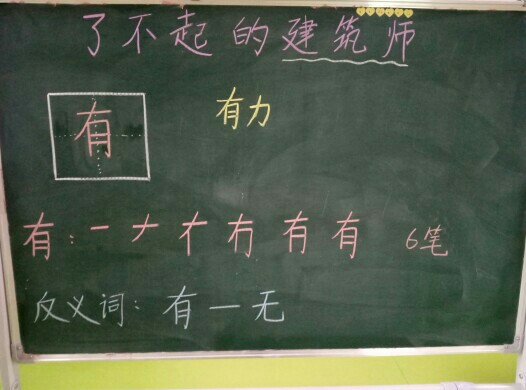 了不起的建筑师
有 有力
有：一 ナ 才 冇 有 有 6笔
反义词：有一无